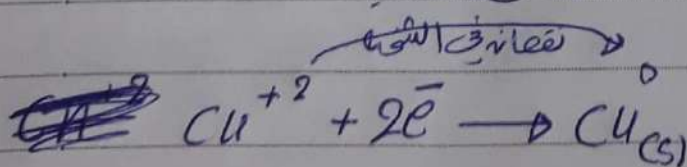 نقصان في الشحنة
Cu⁺² + 2e⁻ → Cu⁰(s)